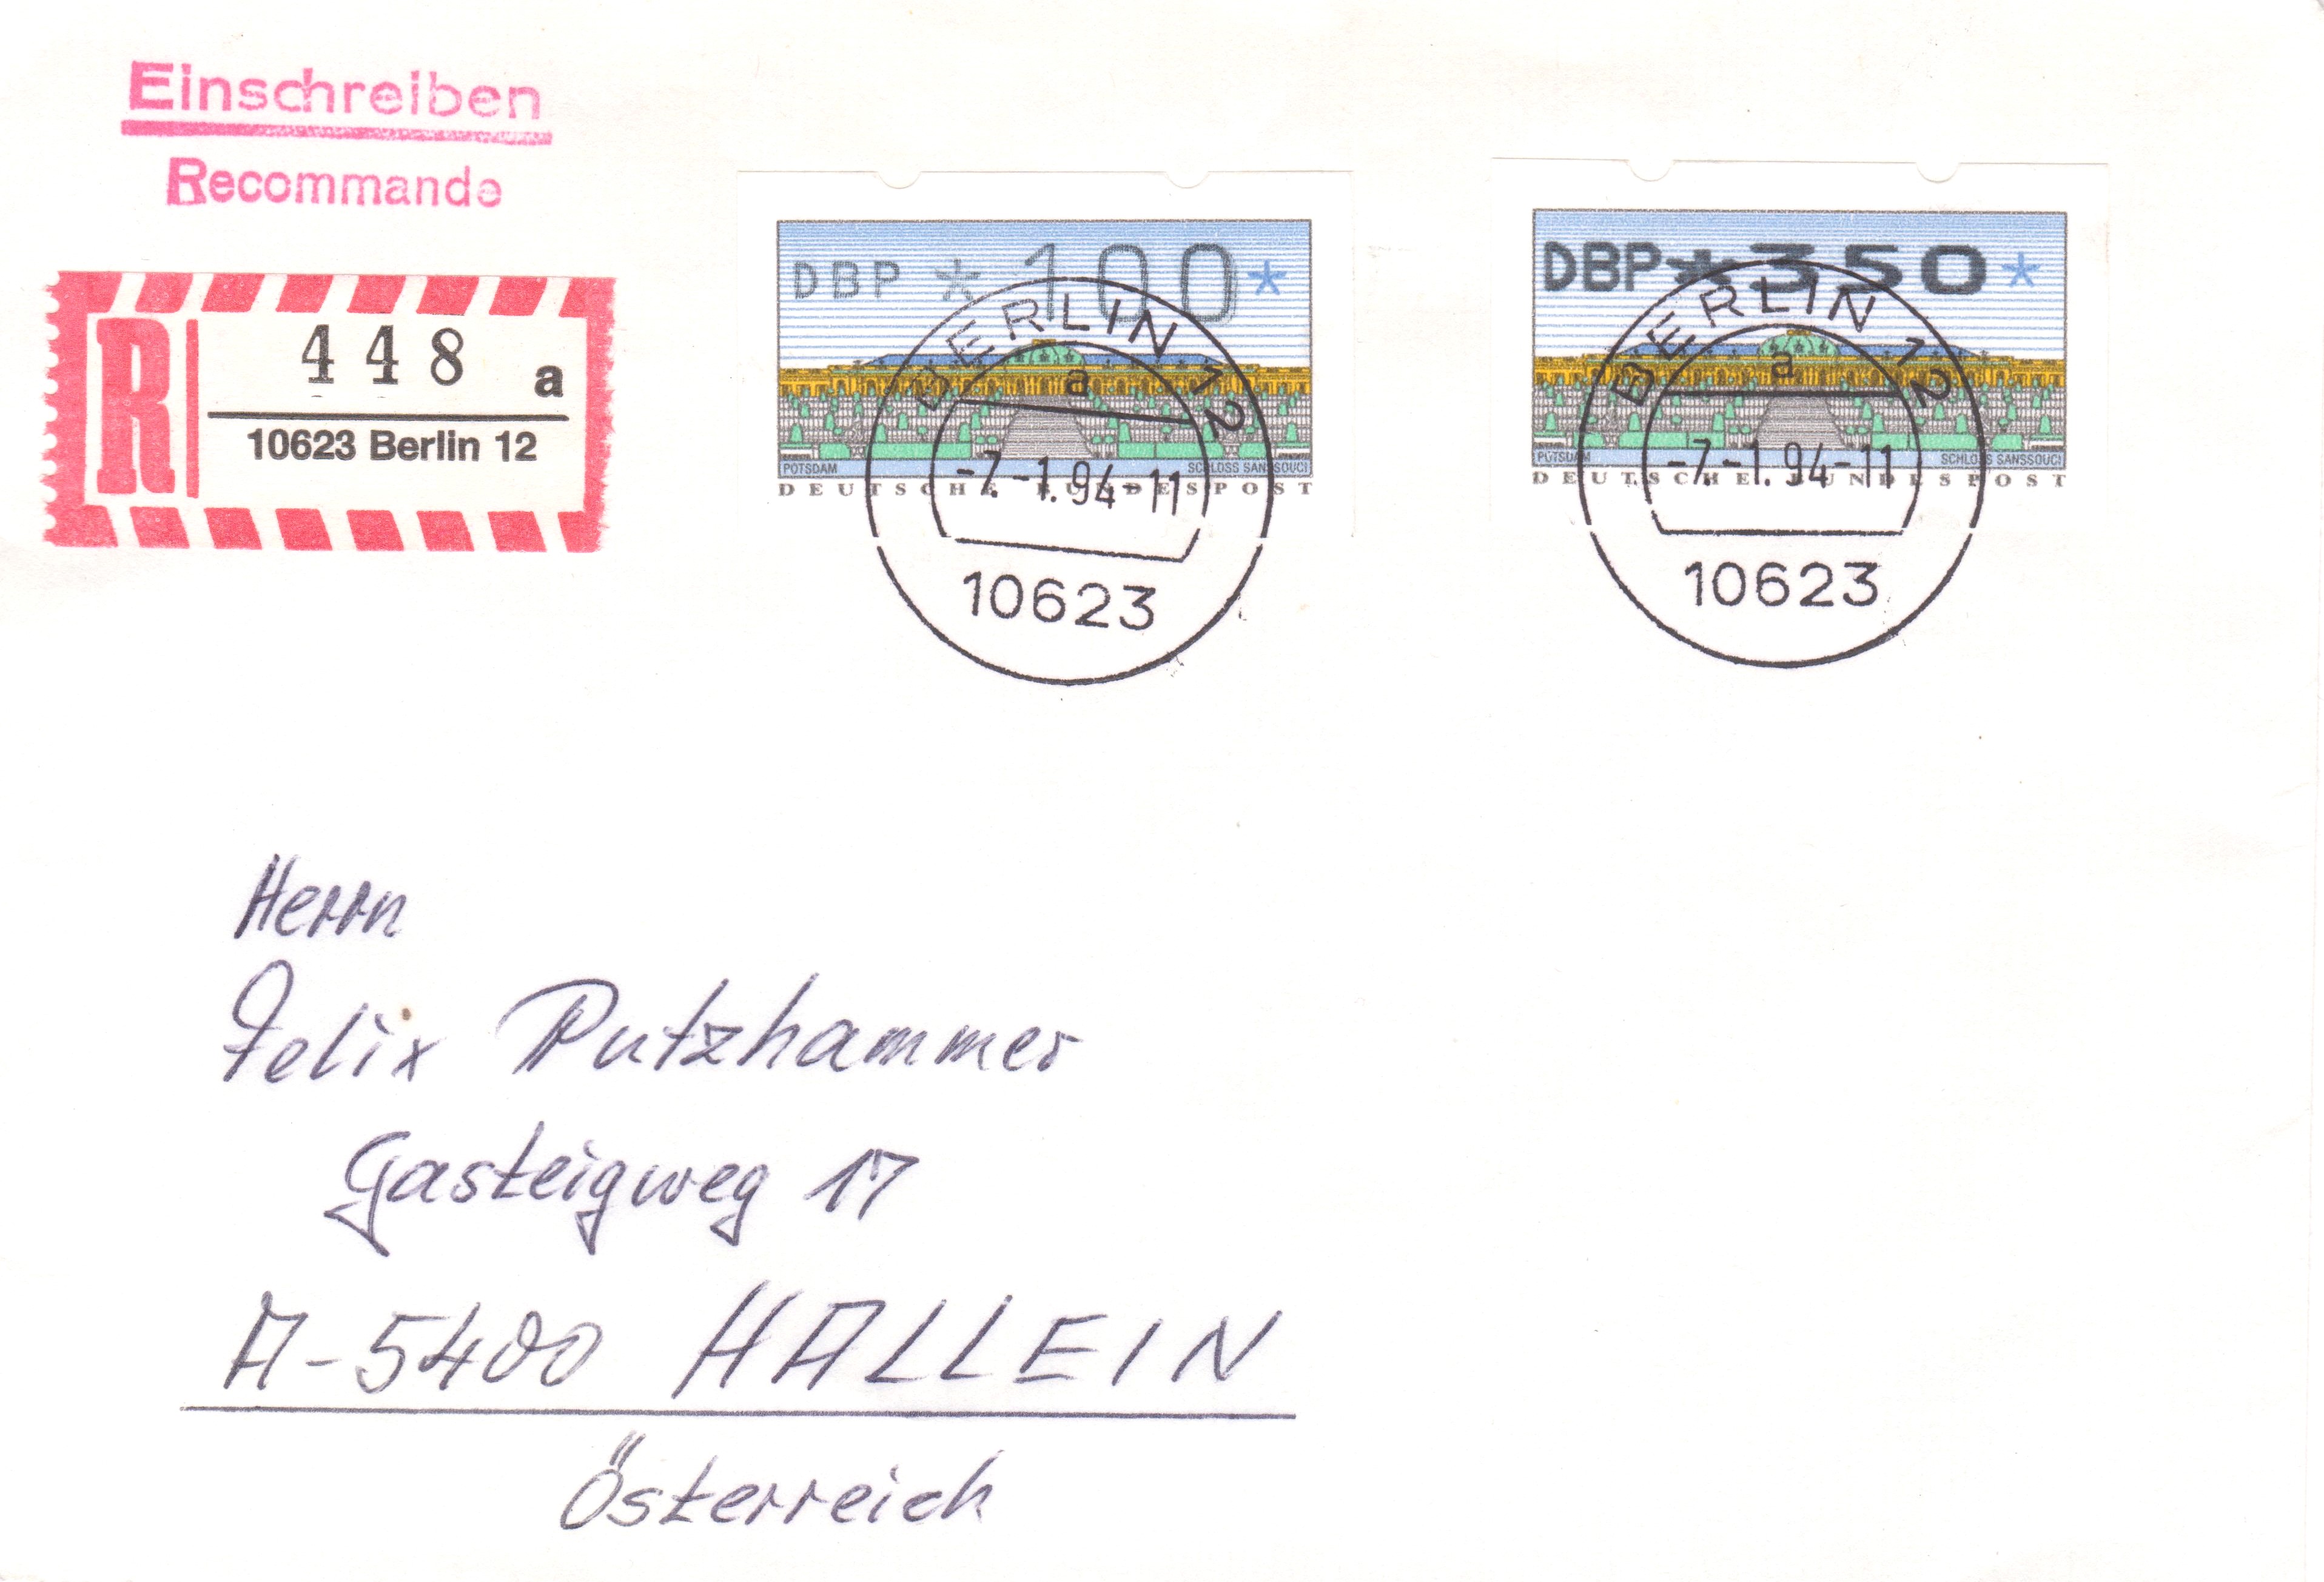 Einschreiben
Recommande
R 448 a
10623 Berlin 12
DBP * 100 *
POTSDAM SCHLOSS SANSSOUCI
DEUTSCHE BUNDESPOST
BERLIN 12
a
-7.-1.94-11
10623
DBP * 350 *
POTSDAM SCHLOSS SANSSOUCI
DEUTSCHE BUNDESPOST
BERLIN 12
a
-7.-1.94-11
10623
Herrn
Felix Putzhammer
Gasteigweg 17
A-5400 HALLEIN
Österreich